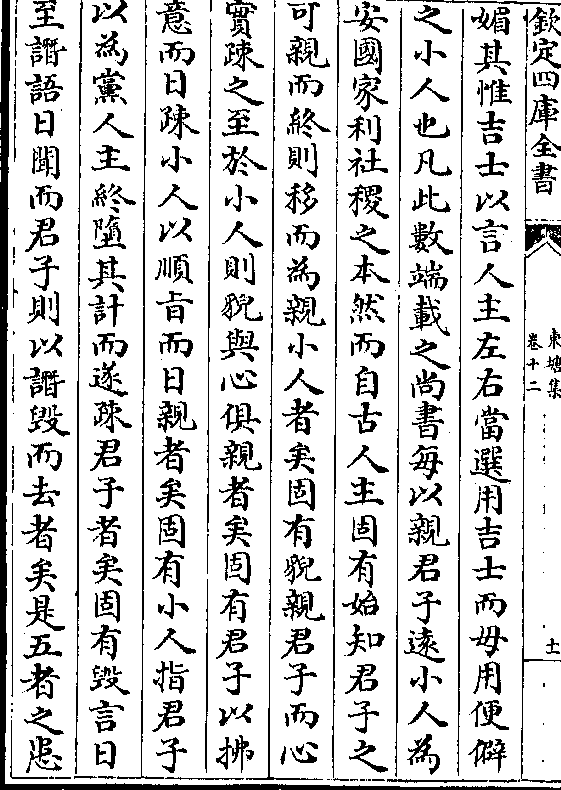 欽定四庫全書
東塘集
卷十二
十一
媚其惟吉士以言人主左右當選用吉士而毋用便僻
之小人也凡此數端載之尚書每以親君子逺小人為
安國家利社稷之本然而自古人主固有始知君子之
可親而終則移而為親小人者矣固有貎親君子而心
實踈之至於小人則貎與心俱親者矣固有君子以拂
意而日踈小人以順㫖而日親者矣固有小人指君子
以為黨人主終隨其計而遂疎君子者矣固有毀言日
至譖語日聞而君子則以譖毀而去者矣是五者之患